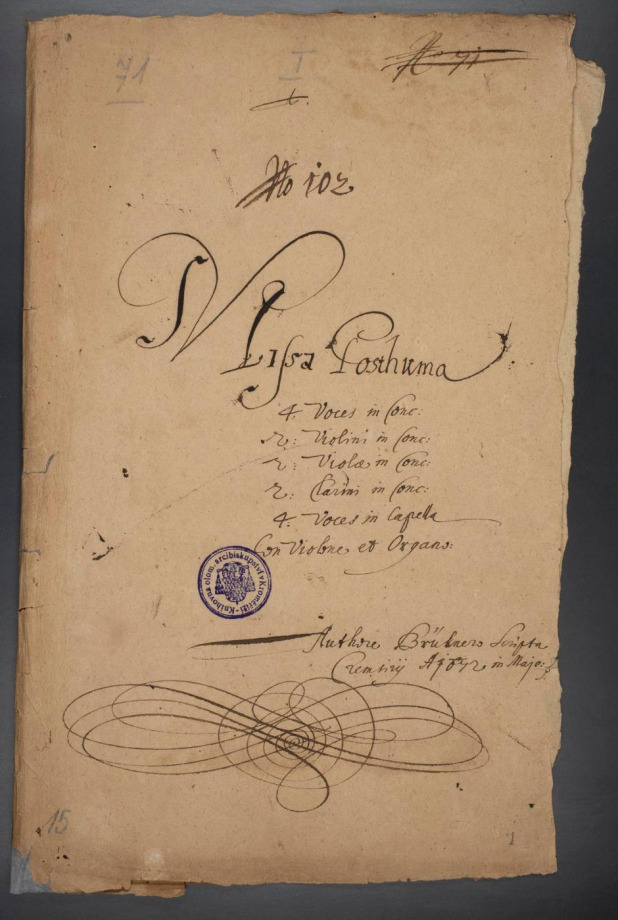 71
I
No 71
No 102
Missa Posthuma
4. Voces in Conc:
2: Violini in Conc:
2: Violæ in Conc:
2: Clarini in Conc:
4. Voces in Capella
Con Violone et Organo:
Knihovna olom. arcibiskupství v Kroměříži
Authore Brükners Scripta
Cremsirij in Majo:
15
1